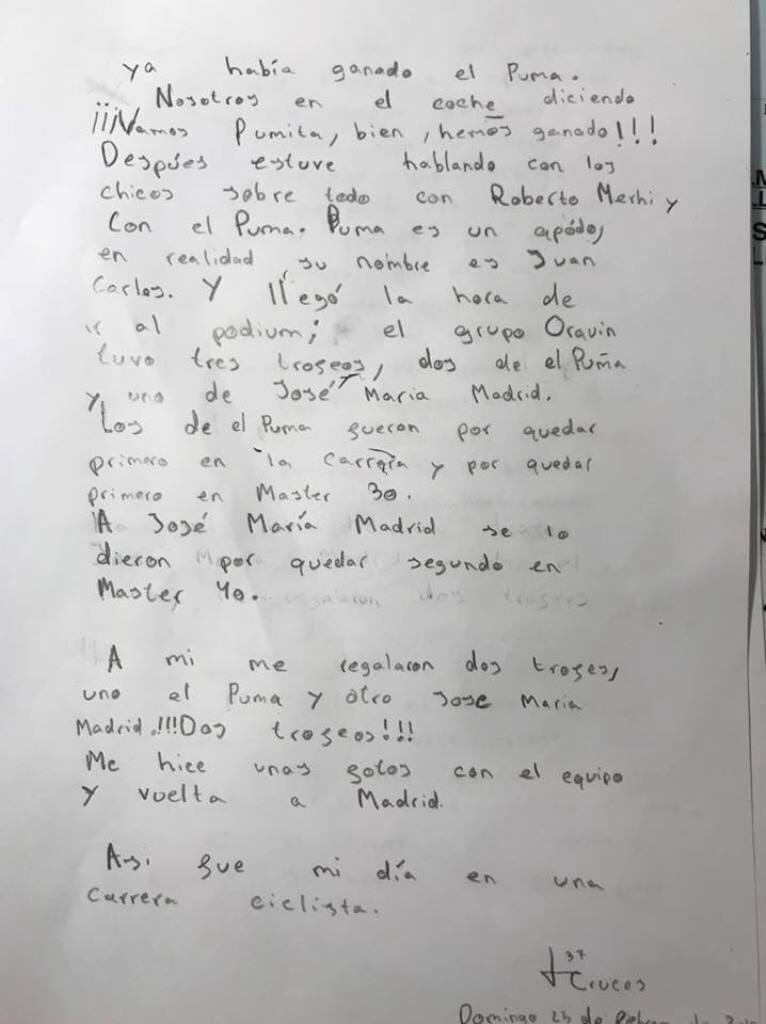 ya había ganado el Puma.
Nosotros en el coche diciendo
¡¡¡Vamos Pumita, bien, hemos ganado!!!
Despúes estuve hablando con los
chicos sobre todo con Roberto Merhi y
Con el Puma. Puma es un apódo,
en realidad su nombre es Juan
Carlos. Y llegó la hora de
ir al podium; el grupo Oravin
tuvo tres trofeos, dos de el Puma
y uno de José María Madrid.
Los de el Puma fueron por quedar
primero en la Carrera y por quedar
primero en Master 30.
A José María Madrid se lo
dieron por quedar segundo en
Master 40.
A mi me regalaron dos trofes,
uno el Puma y otro Jose Maria
Madrid.!!!Dos trofeos!!!
Me hice unas fotos con el equipo
y vuelta a Madrid.
Asi fue mi día en una
Carrera ciclista.
37
Cruces
Domingo 23 de Febrero de